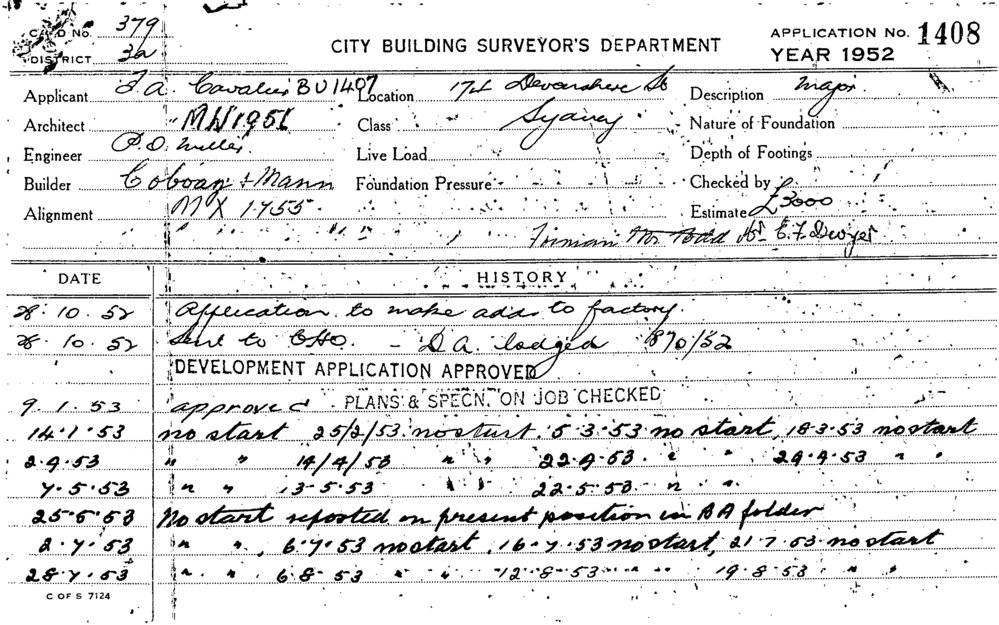 CARD No. 379
DISTRICT 3a
CITY BUILDING SURVEYOR'S DEPARTMENT
APPLICATION No. 1408
YEAR 1952
Applicant F. A. Cavalier BU1407 Location 174 Devonshire St Description Major
Architect MW1951 Class Sydney Nature of Foundation
Engineer P. O. Miller Live Load Depth of Footings
Builder Coboan & Mann Foundation Pressure Checked by
Alignment MX 1755 Estimate £3000
Forman Mr Todd Mr E. F. Dwyer
DATE HISTORY
28.10.52 Application to make adds to factory.
28.10.52 Sent to CHO. - D A. lodged 870/52
DEVELOPMENT APPLICATION APPROVED
9.1.53 approved PLANS & SPECN. ON JOB CHECKED
14.1.53 no start 25/2/53 no start, 5.3.53 no start, 18.3.53 no start
2.4.53 " " 14/4/53 " " 22.4.53 " " 29.4.53 " "
7.5.53 " " 13.5.53 " " 22.5.53 " "
25.6.53 No start reported on present position in BA folder
2.7.53 " " , 6.7.53 no start, 16.7.53 no start, 21.7.53 no start
28.7.53 " " 6.8.53 " " 12.8.53 " " 19.8.53 " "
C OF S 7124